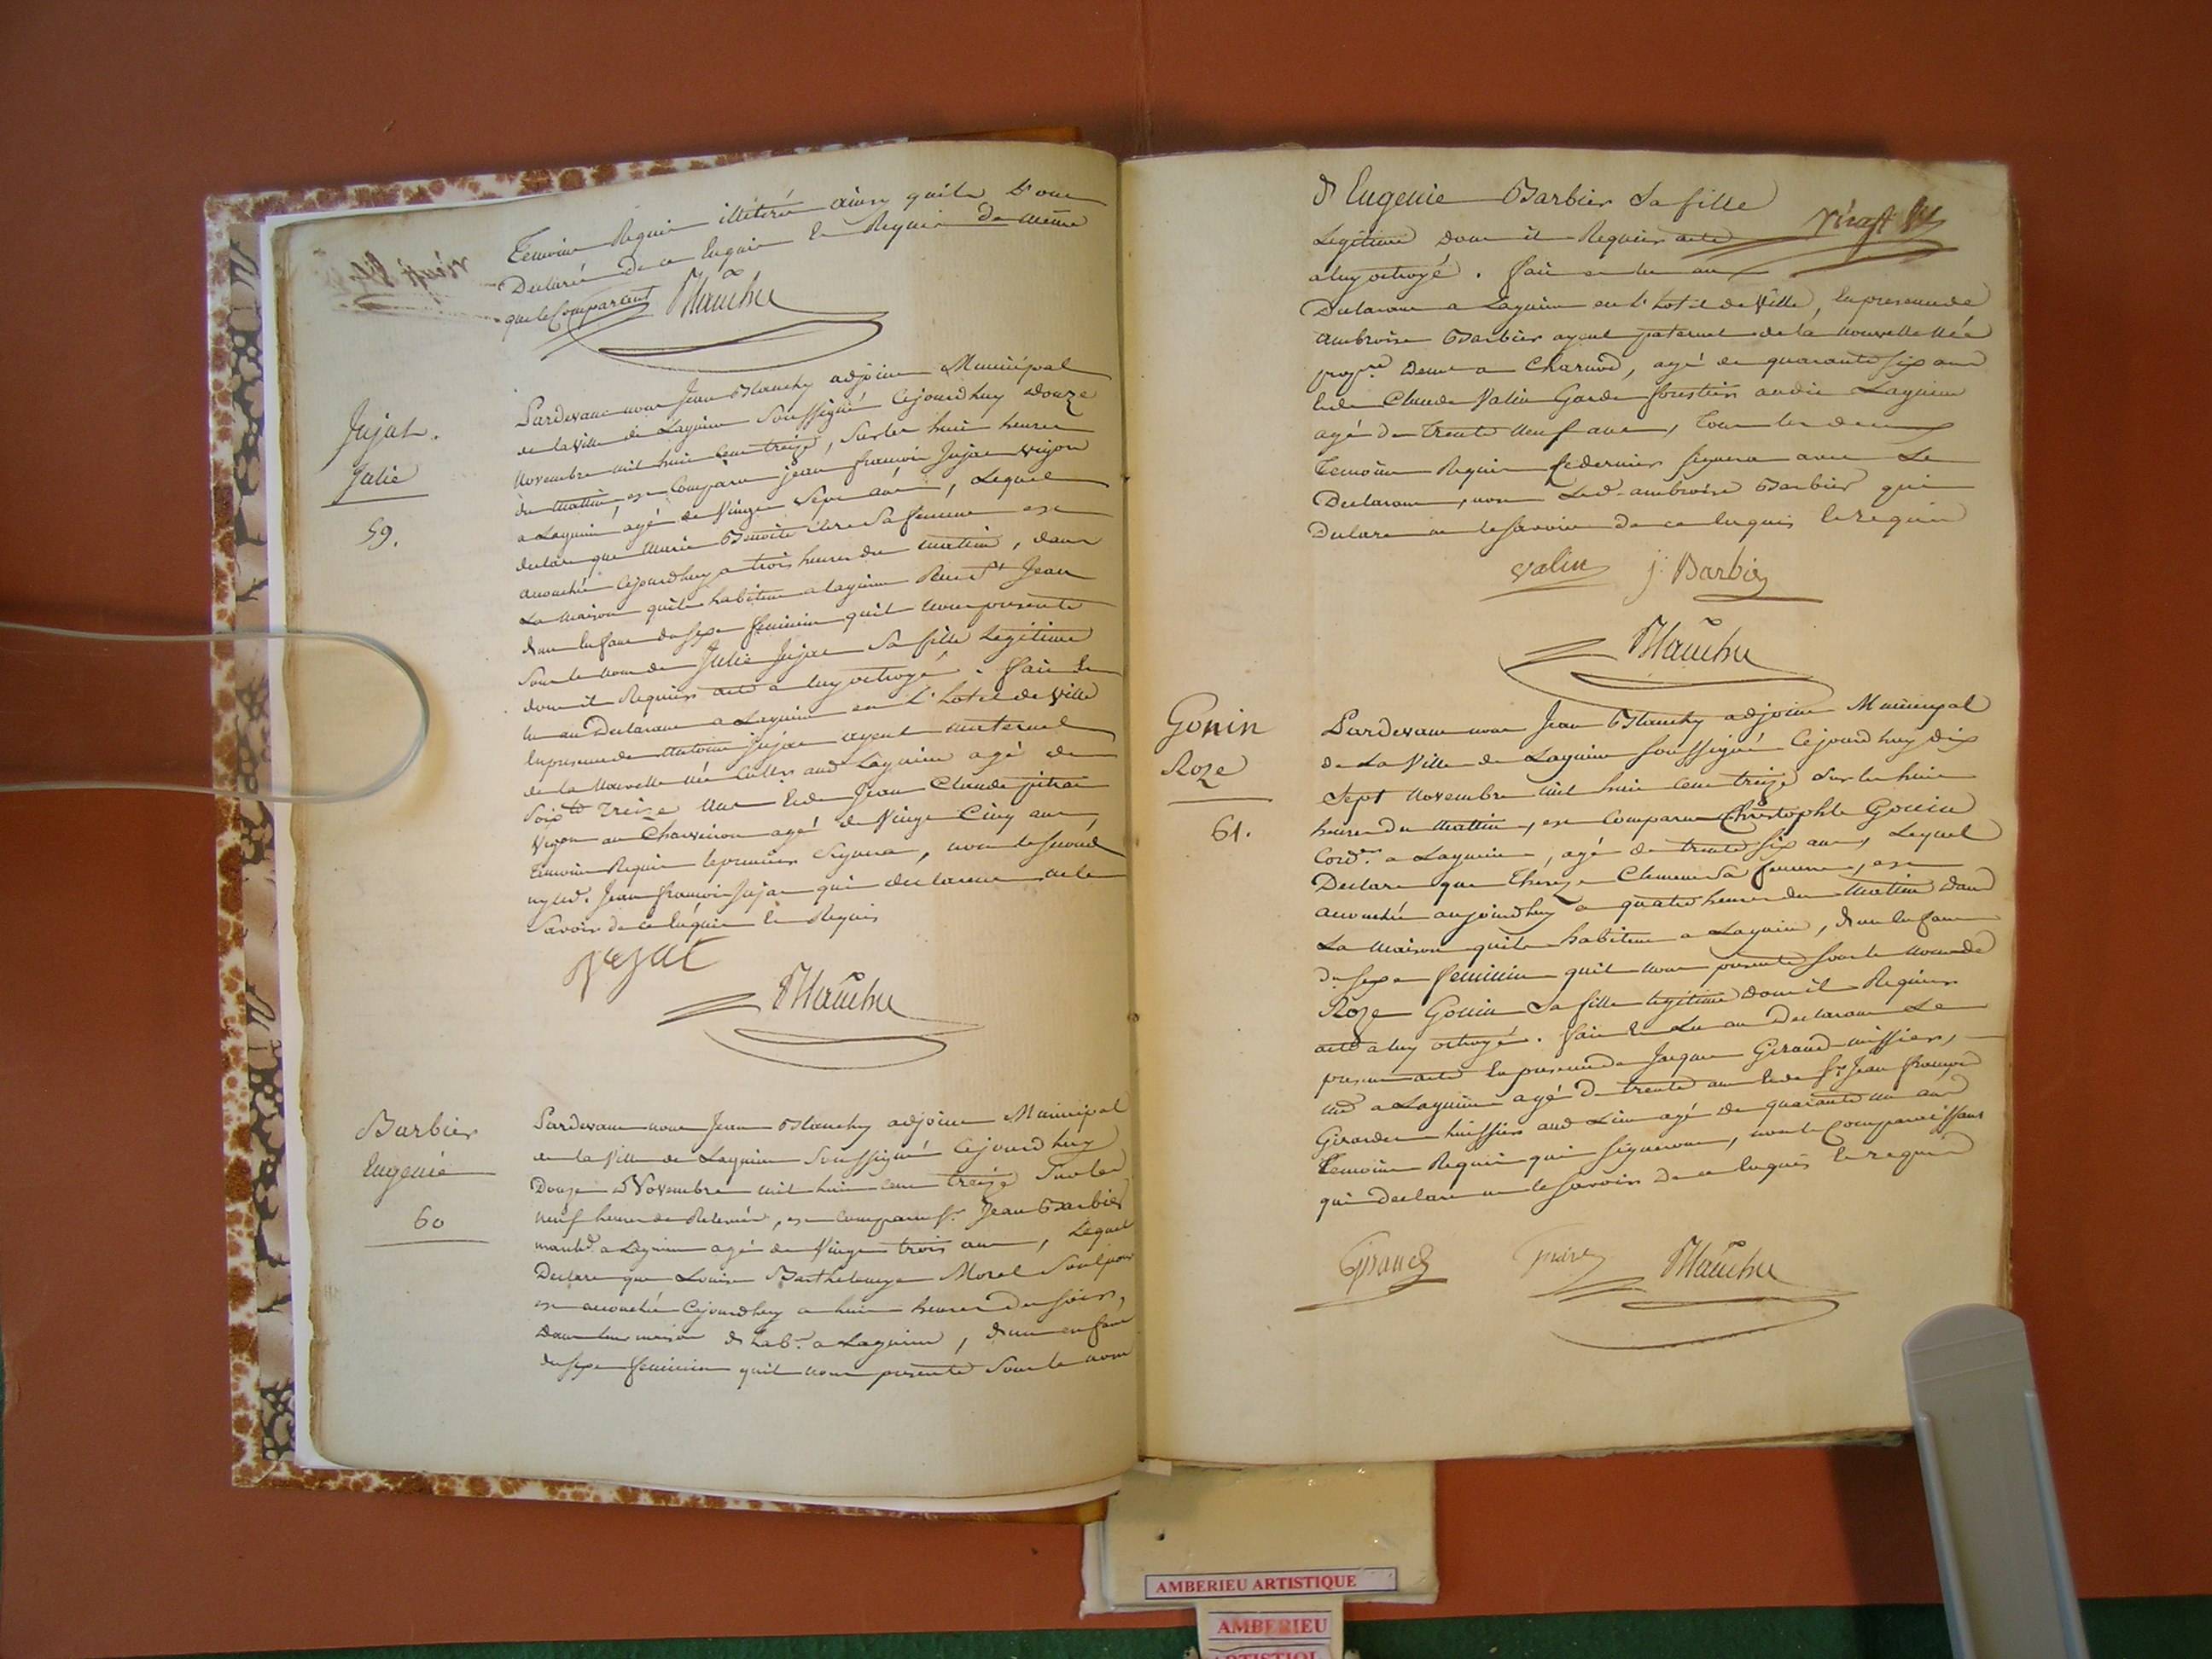 Temoins Requis illiterés ainsy quils l'ont
Declaré de ce Enquis et Requis de meme
que le Comparant Blanchy
Jujat.
Julie
59.
Pardevant nous Jean Blanchy adjoint Municipal
de la ville de Lagnieu Soussigné Cejourdhuy Douze
Novembre mil huit Cent treize, Sur les huit heures
du Mattin, est Comparu jean francois Jujat vigon
a Lagnieu, agé de Vingt Sept ans, Lequel
declare que Marie Benoite Sa femme est
accouchée Cejourdhuy a trois heures du mattin, dans
La Maison quils habitent a lagnieu Rue St Jean
d'un Enfant du sexe feminin quil nous presente
Sous le nom de Julie Jujat Sa fille Legitime
dont il Requiert acte a luy octroyé. fait et
lu au Declarant a Lagnieu en l'hotel de ville
En presence de Antoine Jujat ayeul maternel
de la Nouvelle née Cult.r aud Lagnieu agé de
Soix.te Treize ans et de Jean Claude pitrat
Vigon au Charveiron agé de Vingt Cinq ans,
Temoins Requis le premier Signera, non le second
ny led. Jean francois Jujat qui declarent ne le
Savoir de ce Enquis et Requis
Jujat
Blanchy
Barbier
Eugenie
60
Pardevant nous Jean Blanchy adjoint Municipal
de la Ville de Lagnieu Soussigné Cejourdhuy
Douze Novembre mil huit Cent treize Sur les
neuf heures de Relevée, est Comparu Sr. Jean Barbier
march.d a Lagnieu agé de Vingt trois ans, Lequel
Declare que Louise Barthelemye Morel Son Epouse
est accouchée Cejourdhuy a huit heures du soir,
Dans leur maison d'hab.on a Lagnieu, d'un enfant
du sexe feminin quil nous presente Sous le nom
d'Eugenie Barbier Sa fille
Legitime dont il Requiert acte
a luy octroyé. fait et lu au
Declarant a Lagnieu en l'hotel de Ville, En presence de
Ambroise Barbier ayeul paternel de la nouvelle née
propre. demt a Charnod, agé de quarante six ans
Et de Claude Valin Garde forestier audit Lagnieu
agé de Trente Neuf ans, tous les deux
Temoins Requis Ce dernier signera avec Le
Declarant, non Led. ambroise Barbier qui
Declare ne le savoir de ce Enquis Et requis
valin j. Barbier
Blanchy
Gonin
Roze
61.
Pardevant nous Jean Blanchy adjoint Municipal
de La Ville de Lagnieu soussigné Cejourdhuy dix
Sept Novembre mil huit Cent treize Sur les huit
heures du Mattin, est Comparu Christophle Gonin
Cord.er a Lagnieu, agé de trente six ans, Lequel
Declare que Thereze Clement Sa femme, est
accouchée aujourdhuy a quatre heures du Matin dans
La Maison quils habitent a Lagnieu, d'un Enfant
du sexe feminin quil nous presente sous le nom de
Roze Gonin Sa fille legitime dont il Requiert
acte a luy octroyé. fait et Lu au Declarant Le
present acte En presence de Jacques Giraud
md a Lagnieu agé de trente ans Et de Sr Jean francois
Girardet huissier aud Lieu agé de quarante un an
Temoins Requis qui signeront, non le Comparaissant
qui Declare ne le savoir de ce Enquis Et requis
Giraud
Blanchy
AMBERIEU ARTISTIQUE
AMBERIEU